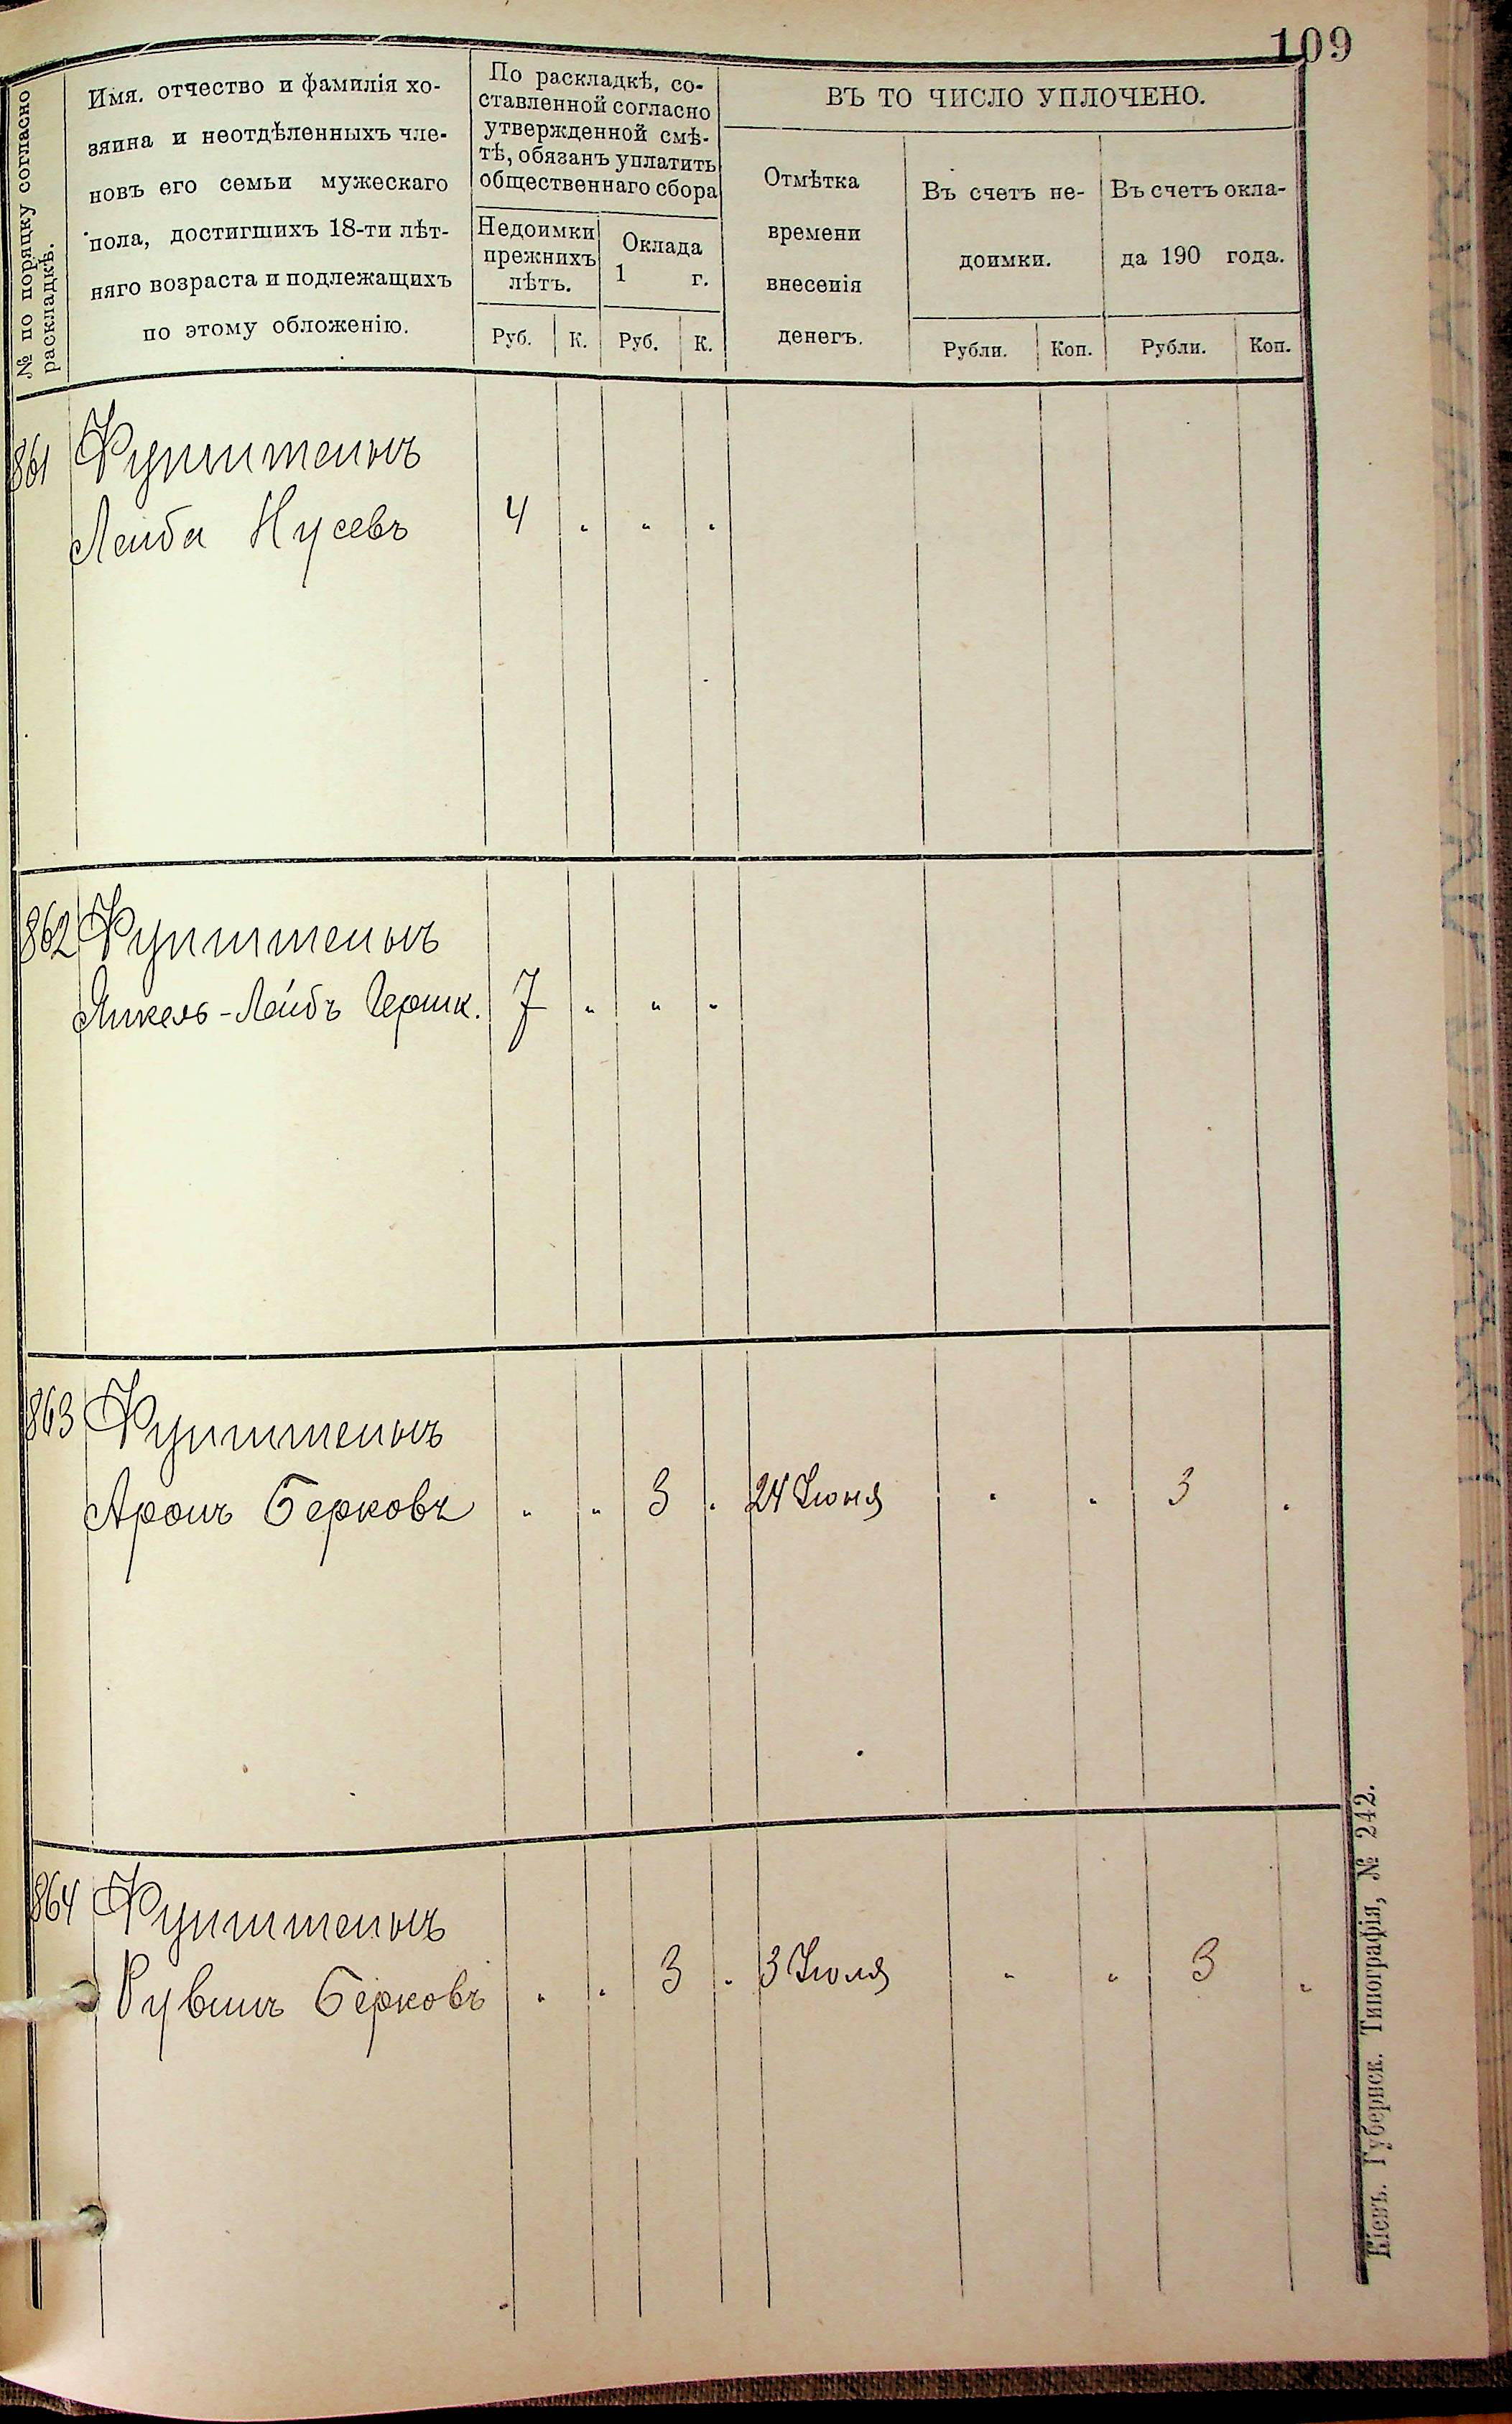 109
№ по порядку согласно
раскладкѣ.
Имя. отчество и фамилія хо-
зяина и неотдѣленныхъ чле-
новъ его семьи мужескаго
пола, достигшихъ 18-ти лѣт-
няго возраста и подлежащихъ
по этому обложенію.
По раскладкѣ, со-
ставленной согласно
утвержденной смѣ-
тѣ, обязанъ уплатить
общественнаго сбора
Недоимки
прежнихъ
лѣтъ.
Оклада
1 г.
Руб. К. Руб. К.
ВЪ ТО ЧИСЛО УПЛОЧЕНО.
Отмѣтка
времени
внесенія
денегъ.
Въ счетъ не-
доимки.
Въ счетъ окла-
да 190 года.
Рубли. Коп. Рубли. Коп.
861 Фупштейнъ
Лейба Нусевъ 4 " " "
862 Фупштейнъ
Янкель-Лейбъ Гершк. 7 " " "
863 Фупштейнъ
Аронъ Берковъ " " 3 " 24 Іюня " " 3 "
864 Фупштейнъ
Рувинъ Берковъ " " 3 " 3 Іюля " " 3 "
Кіевъ. Губернск. Типографія, № 242.